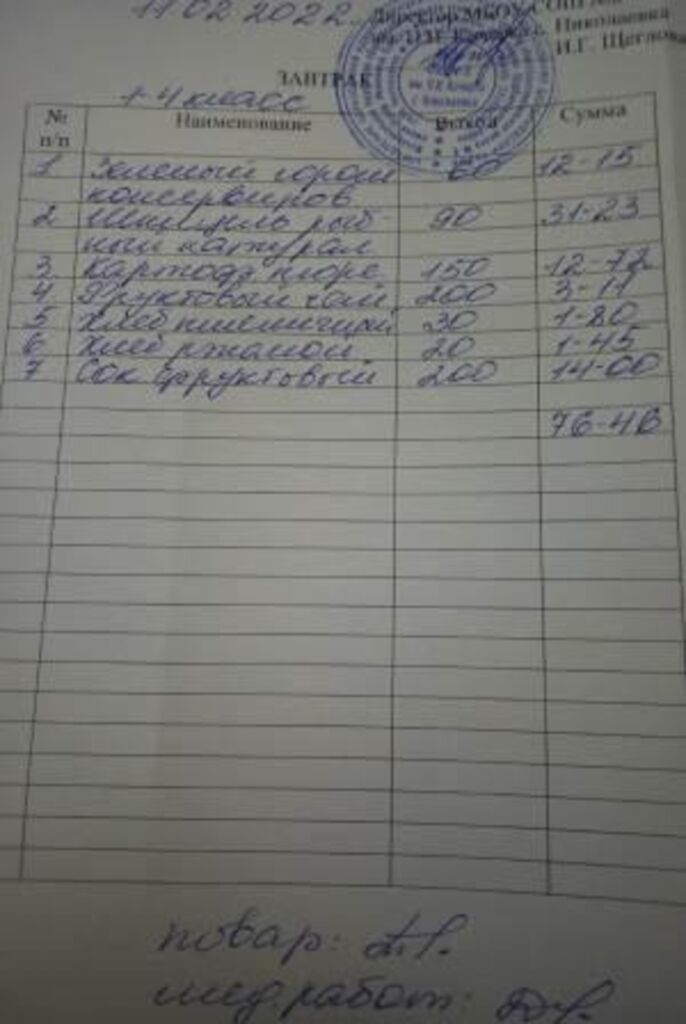 11 02 2022
Директор МКОУ СОШ
Николаевка
И.Г. Щеглова
ЗАВТРАК
1-4 класс
№ п/п Наименование Выход Сумма
1 Зеленый горош 60 12-15
консервиров
2 Шницель рыб 90 31-23
ный натурал
3 Картоф пюре 150 12-72
4 Фруктовый чай 200 3-11
5 Хлеб пшеничный 30 1-80
6 Хлеб ржаной 20 1-45
7 Сок фруктовый 200 14-00
76-46
повар:
мед.работ: